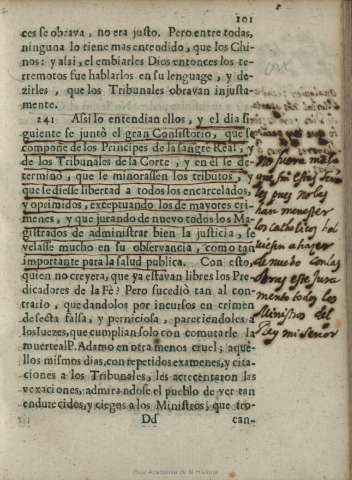 101
ces se obrava, no era justo. Pero entre todas,
ninguna lo tiene mas entendido, que los Chi-
nos: y assi, el embiarles Dios entonces los te-
rremotos fue hablarlos en su lenguage, y de-
zirles, que los Tribunales obravan injusta-
mente.
241 Assi lo entendian ellos, y el dia si-
guiente se juntò el gran Consistorio, que se
compone de los Principes de la sangre Real, y
de los Tribunales de la Corte, y en èl se de-
terminò, que se minorassen los tributos, y
que se diesse libertad a todos los encarcelados,
y oprimidos, exceptuando los de mayores cri-
menes, y que jurando de nuevo todos los Ma-
gistrados de administrar bien la justicia, se
velasse mucho en su observancia, como tan
importante para la salud publica. Con esto,
quien no creyera, que ya estavan libres los Pre-
dicadores de la Fè? Pero sucediò tan al con-
trario, que dandolos por incursos en crimen
de secta falsa, y perniciosa, pareciendoles a
los Iuezes, que cumplian solo con comutarle la
muerte al P. Adamo en otra menos cruel; aque-
llos mismos dias, con repetidos examenes, y cita-
ciones a los Tribunales, les acrecentaron las
vexaciones, admirandose el pueblo de ver tan
endurecidos, y ciegos a los Ministros, que tro-
Dd
can-
No fuera mala
que su estas
les pues no las
han menester
los catholicos
viesen a hazer
de nuebo con las
obras este Jura
mento todos los
Ministros del
Rey mi señor
Real Academia de la Historia